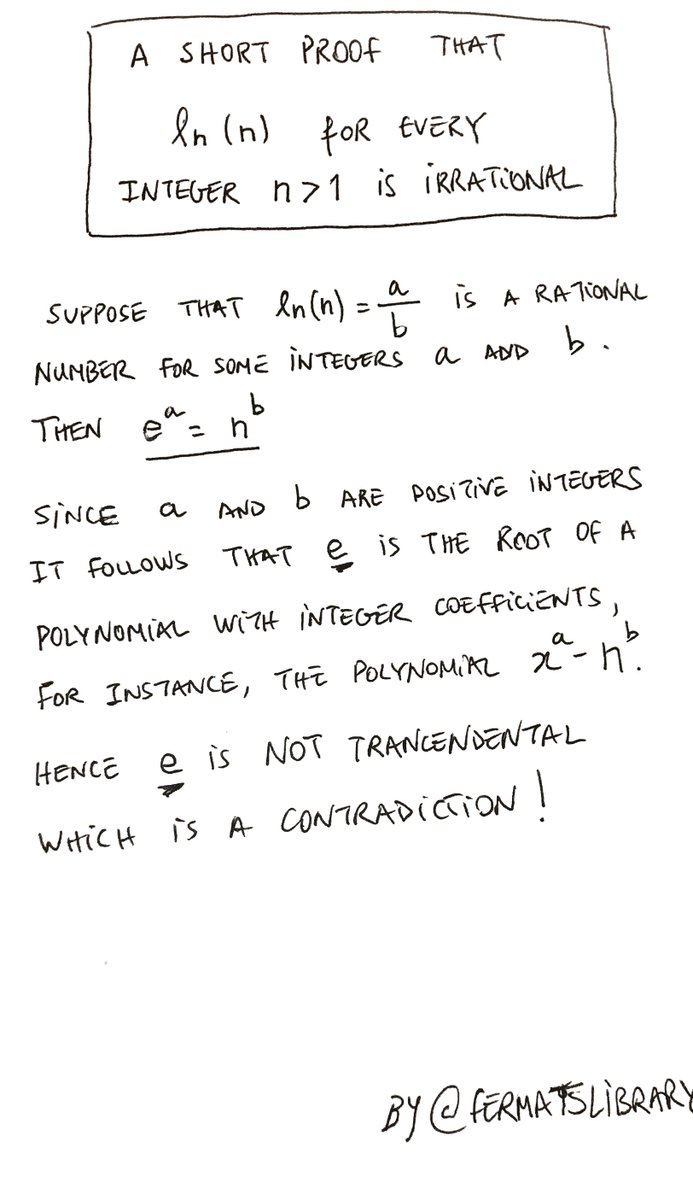 A SHORT PROOF THAT
ln (n) FOR EVERY
INTEGER n > 1 is iRRATiONAL
SUPPOSE THAT ln(n) = a/b is A RATIONAL
NUMBER FOR SOME iNTEGERS a AND b.
THEN e^a = n^b
SiNCE a AND b ARE POSITIVE iNTEGERS
IT FOLLOWS THAT e iS THE ROOT OF A
POLYNOMiAL WiTH iNTEGER COEFFiCiENTS,
FOR INSTANCE, THE POLYNOMiAL x^a - n^b.
HENCE e iS NOT TRANCENDENTAL
WHiCH iS A CONTRADiCTiON!
BY @FERMATSLiBRARY